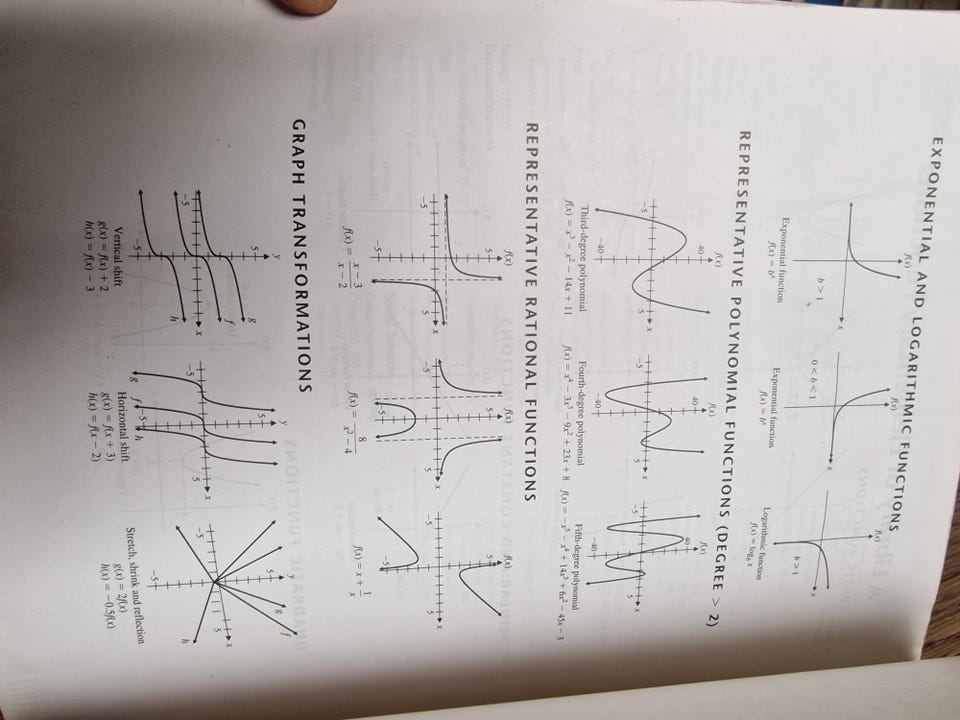 EXPONENTIAL AND LOGARITHMIC FUNCTIONS
f(x)
x
b > 1
Exponential function
f(x) = bˣ
f(x)
x
0 < b < 1
Exponential function
f(x) = bˣ
f(x)
x
b > 1
Logarithmic function
f(x) = log_b x
REPRESENTATIVE POLYNOMIAL FUNCTIONS (DEGREE > 2)
f(x)
40
x
−5
5
−40
Third-degree polynomial
f(x) = x³ − x² − 14x + 11
f(x)
40
x
−5
5
−40
Fourth-degree polynomial
f(x) = x⁴ − 3x³ − 9x² + 23x + 8
f(x)
40
x
−5
5
−40
Fifth-degree polynomial
f(x) = −x⁵ − x⁴ + 14x³ + 6x² − 45x − 3
REPRESENTATIVE RATIONAL FUNCTIONS
f(x)
5
x
−5
5
−5
f(x) = (x − 3)/(x − 2)
f(x)
5
x
−5
5
−5
f(x) = 8/(x² − 4)
f(x)
5
x
−5
5
−5
f(x) = x + 1/x
GRAPH TRANSFORMATIONS
y
5
g
f
x
−5
h
−5
Vertical shift
g(x) = f(x) + 2
h(x) = f(x) − 3
y
5
x
−5
g
f
−5
h
Horizontal shift
g(x) = f(x + 3)
h(x) = f(x − 2)
y
f
5
g
x
−5
h
−5
Stretch, shrink and reflection
g(x) = 2f(x)
h(x) = −0.5f(x)